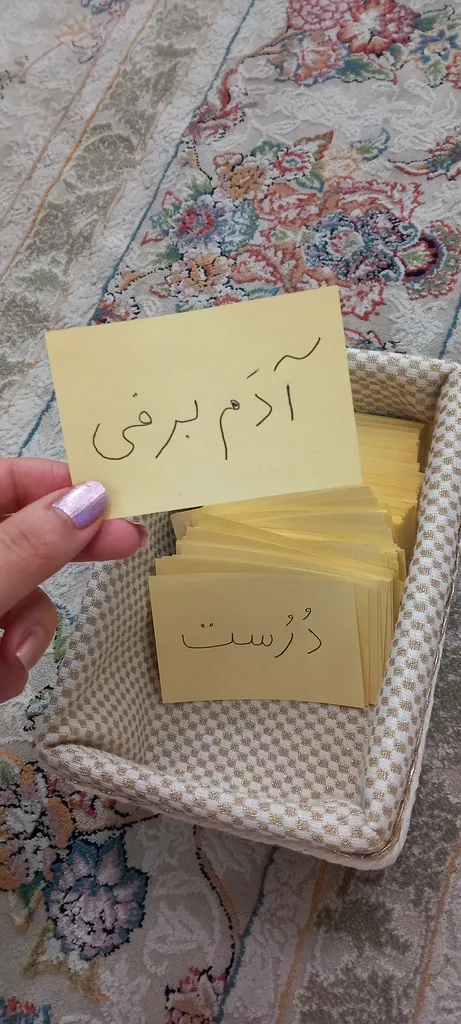 آدَم برفی
دُرُست